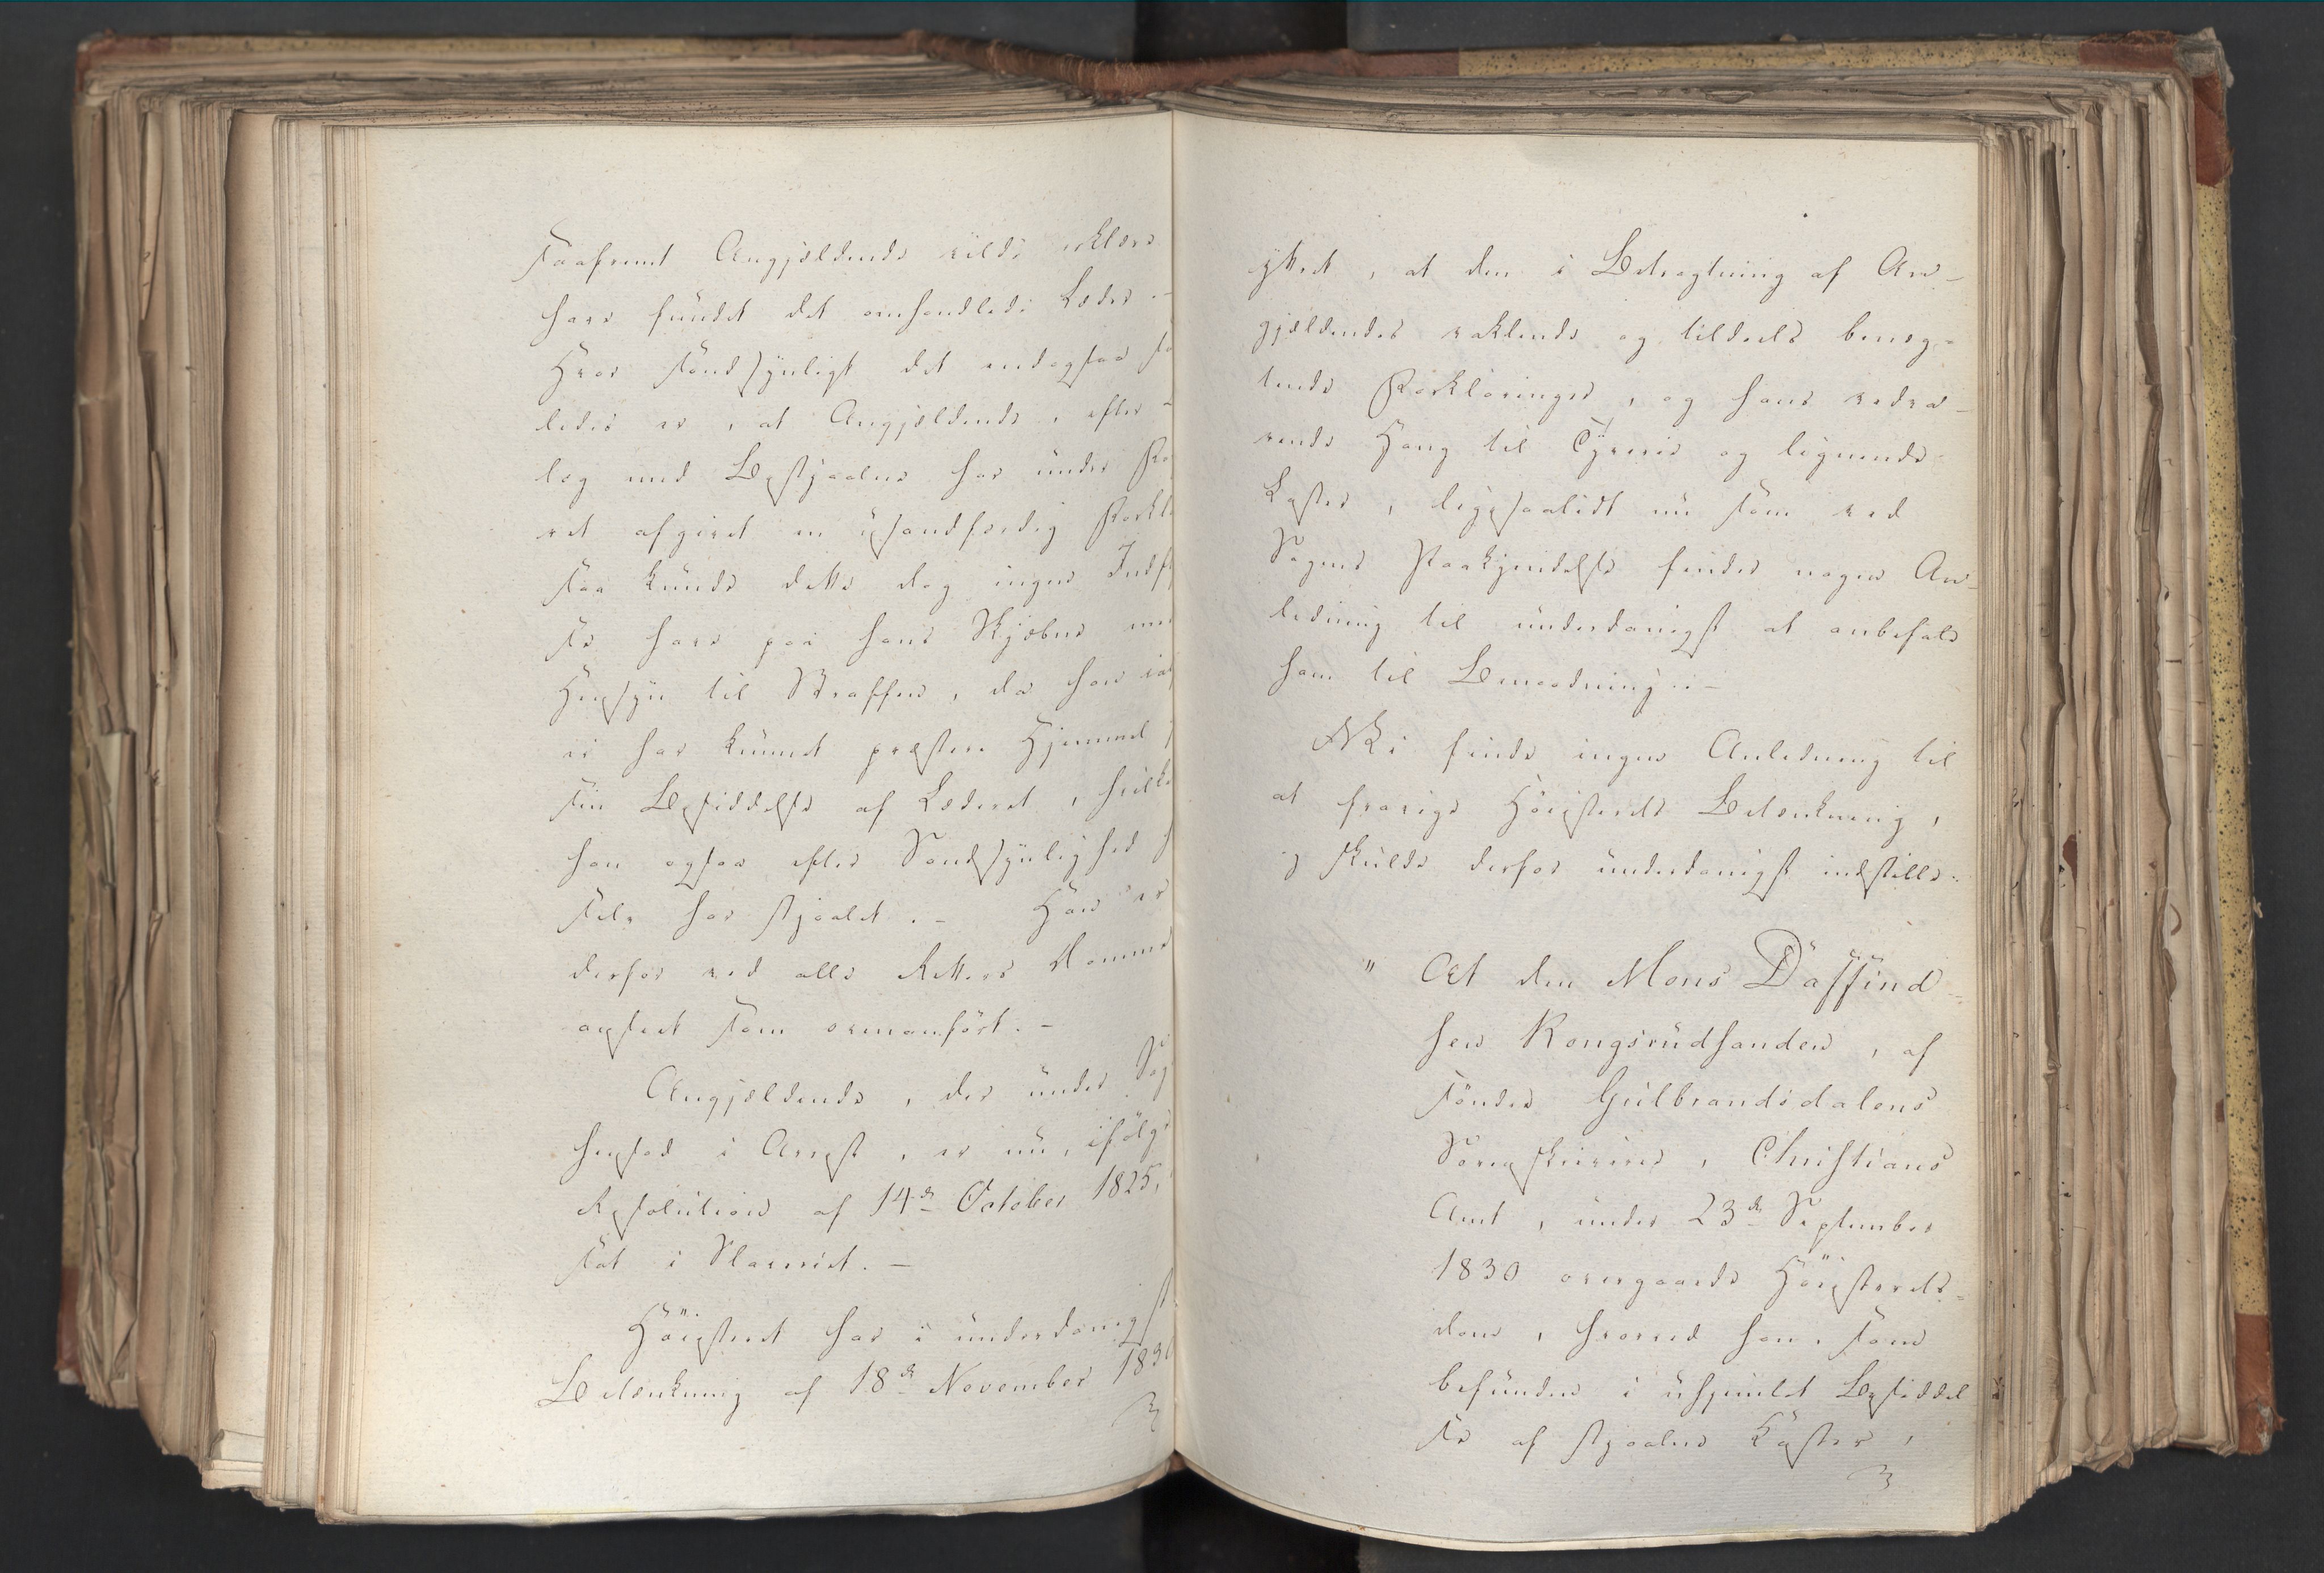 saafremt Angjældende vilde erklære
have fundet det omhandlede Læder.-
Hvor sandsynligt det endogsaa
ledes er, at Angjældende, efter
læg med Bestjaalne har under
ret afgivet en usandfærdig
saa kunde dette dog ingen
se have paa hans Skjæbne
Hensyn til Straffen, da han
ei har kunnet præstere Hjemmel
sin Besiddelse af Læderet,
han ogsaa efter Sandsynlighed
selv har stjaalet. - Han er
derfor ved alle Retters Domme
anseet som ovenanført. -
Angjældende, der under
hensad i Arrest, er nu, ifølge
Resolution af 14de October 1825,
sat i Slaveriet. -
Höiesteret har i underdanigst
Betænkning af 18de November
yttret, at den i Betragtning af An-
gjældendes vaklende og tildeels benæg-
tende Forklaringer, og hans vedva-
rende Hang til Tyverie og lignende
Laster, ligesaalidt nu som ved
Sagens Paakjendelse finder nogen An-
ledning til underdanigst at anbefale
ham til Benaadning. -
Vi finde ingen Anledning til
at fravige Höiesterets Betænkning,
og skulde derfor underdanigst indstille:
" At den Mons Daffind-
sen Kongsrudsanden, af
söndre Gulbrandsdalens
Sorenskriverie, Christians
Amt, under 23de September
1830 overgaaede Höiesterets-
dom, hvorved han, som
befunden i uhjemlet Besiddel-
se af stjaalne Koster,